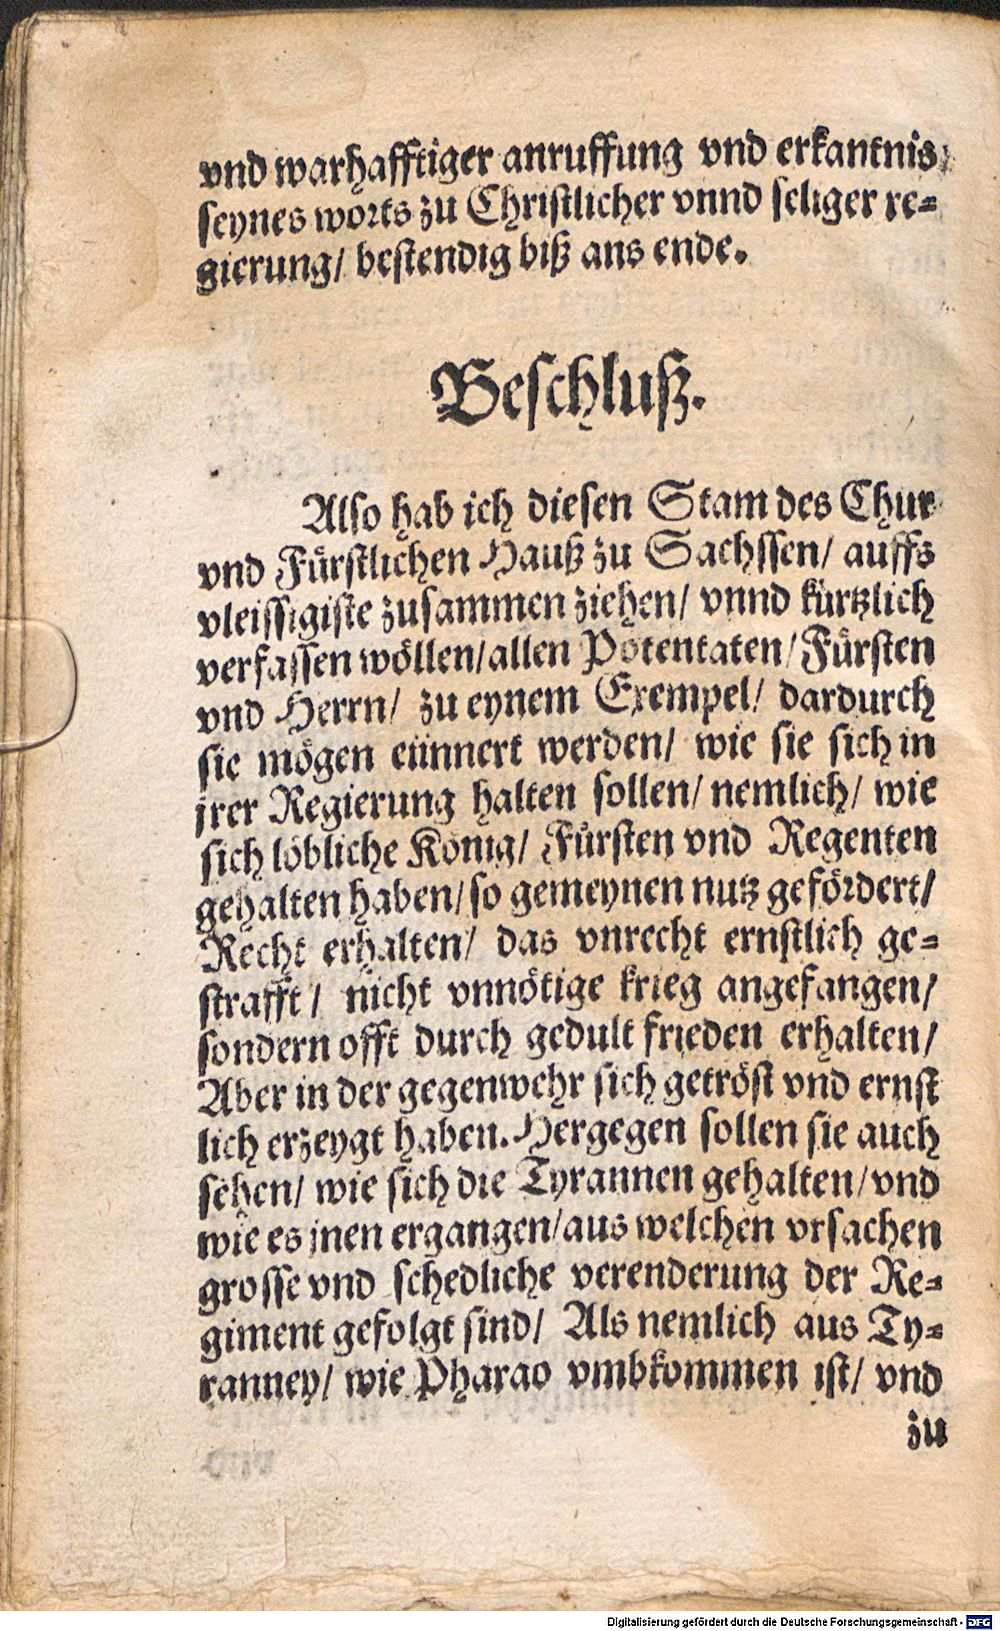 vnd warhafftiger anruffung vnd erkantnis
seynes worts zu Christlicher vnnd seliger re-
gierung/ bestendig biß ans ende.
Beschluß.
Also hab ich diesen Stam des Chur
vnd Fürstlichen Hauß zu Sachssen/ auffs
vleissigiste zusammen ziehen/ vnnd kürtzlich
verfassen wöllen/ allen Potentaten/ Fürsten
vnd Herrn/ zu eynem Exempel/ dardurch
sie mögen eriinnert werden/ wie sie sich in
jrer Regierung halten sollen/ nemlich/ wie
sich löbliche König/ Fürsten vnd Regenten
gehalten haben/ so gemeynen nutz gefördert/
Recht erhalten/ das vnrecht ernstlich ge-
strafft/ nicht vnnötige krieg angefangen/
sondern offt durch gedult frieden erhalten/
Aber in der gegenwehr sich getröst vnd ernst
lich erzeygt haben. Hergegen sollen sie auch
sehen/ wie sich die Tyrannen gehalten/ vnd
wie es jnen ergangen/ aus welchen vrsachen
grosse vnd schedliche verenderung der Re-
giment gefolgt sind/ Als nemlich aus Ty-
ranney/ wie Pharao vmbkommen ist/ vnd
zu
Digitalisierung gefördert durch die Deutsche Forschungsgemeinschaft - DFG